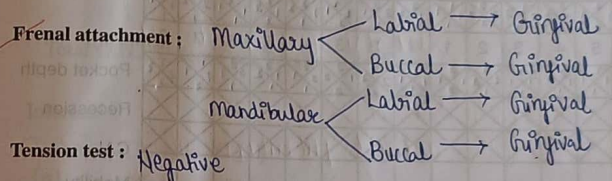 Frenal attachment : Maxillary Labial → Gingival
Buccal → Gingival
Mandibular Labial → Gingival
Buccal → Gingival
Tension test : Negative